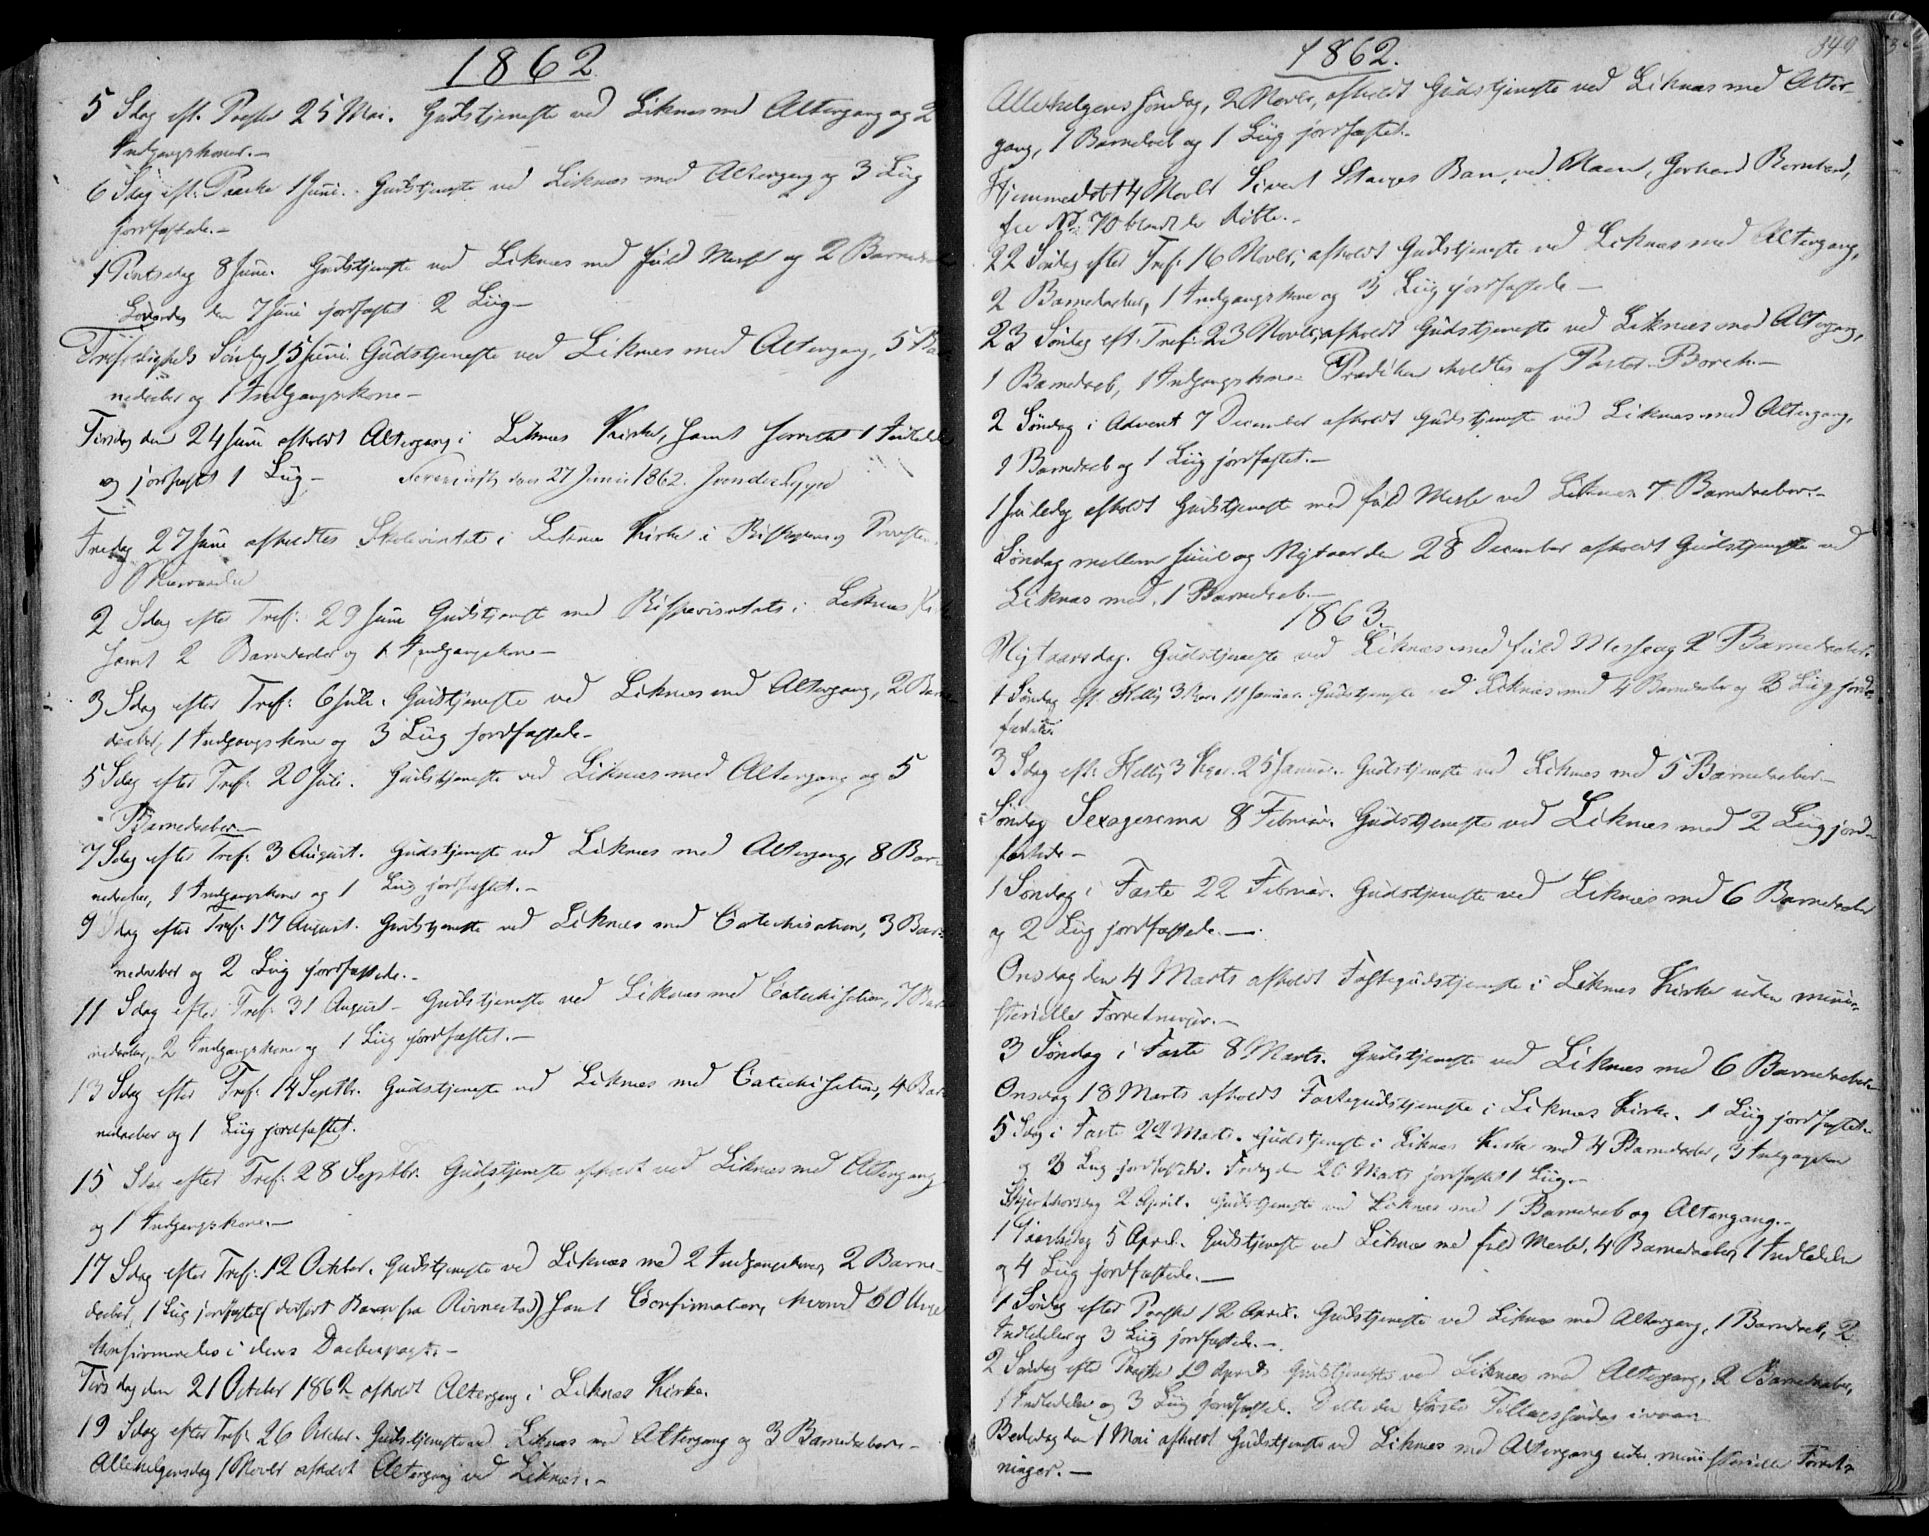 1862
5 Sdag eft. Paaske 25 Mai. Gudstjeneste ved Liknes med Altergang og 2
Indgangskoner.—
6 Sdag eft. Paaske 1 Juni. Gudstjeneste ved Liknes med Altergang og 3 Liig
jordfæstede.—
1 Pintsedag 8 Juni. Gudstjeneste ved Liknes med fuld Messe og 2
Løverdag den 7 Juni jordfæstet 2 Liig—
Trefoldigheds Søndag 15 Juni. Gudstjeneste ved Liknes med Altergang, 5 Bar
nedaaber og 1 Indgangskone—
Tirsdag den 24 Juni afholdt Altergang i Liknes Kirke, samt forrettet 1
og jordfæstet 1 Liig— den 27 Juni 1862.
Fredag 27 Juni afholdtes Skolevisitats i Liknes Kirke i Biskopens og Provstens
Nærværelse
2 Sdag efter Tref. 29 Juni Gudstjeneste med Bispevisitats i Liknes
samt 2 Barnedaaber og 1 Indgangskone—
3 Sdag efter Tref. 6 Juli. Gudstjeneste ved Liknes med Altergang, 2 Barne
daaber, 1 Indgangskone og 3 Liig jordfæstede—
5 Sdag efter Tref. 20 Juli. Gudstjeneste ved Liknes med Altergang og 5
Barnedaaber—
7 Sdag efter Tref. 3 August. Gudstjeneste ved Liknes med Altergang, 8 Bar
nedaaber, 1 Indgangskone og 1 Liig jordfæstet.—
9 Sdag efter Tref. 17 August. Gudstjeneste ved Liknes med Catechisation, 3 Bar
nedaaber og 2 Liig jordfæstede.—
11 Sdag efter Tref. 31 August— Gudstjeneste ved Liknes med Catechisation, 7 Bar
nedaaber, 2 Indgangskoner og 1 Liig jordfæstet.—
13 Sdag efter Tref. 14 Septbr. Gudstjeneste ved Liknes med Catechisation, 4 Bar
nedaaber og 1 Liig jordfæstet.
15 Sdag efter Tref. 28 Septbr. Gudstjeneste afholdt ved Liknes med Altergang
og 1 Indgangskone.—
17 Sdag efter Tref. 12 October. Gudstjeneste ved Liknes med 2 Indgangskoner, 2 Barne-
daaber, 1 Liig jordfæstet ( Barn fra ) samt Confirmation, hvorved 60 Unge
konfirmeredes i deres Daabespagt.—
Tirsdag den 21 October 1862 afholdt Altergang i Liknes Kirke.
19 Sdag efter Tref. 26 October. Gudstjeneste ved Liknes med Altergang og 3 Barnedaaber.—
Allehelgensdag 1 Novbr afholdt Altergang ved Liknes.—
1862.
349
Allehelgens Søndag, 2 Novbr, afholdt Gudstjeneste ved Liknes med Alter-
gang, 1 Barnedaab og 1 Liig jordfæstet.—
Hjemmedøbt 4 Novbr Sivert Barn, ved Navn, Gerhard Bernhard,
see No 70 blandt de fødte.—
22 Søndag efter Tref. 16 Novbr, afholdt Gudstjeneste ved Liknes med Altergang,
2 Barnedaaber, 1 Indgangskone og 3 Liig jordfæstede—
23 Søndag eft. Tref. 23 Novbr, afholdt Gudstjeneste ved Liknes med Altergang,
1 Barnedaab, 1 Indgangskone. Prædiken holdtes af Pastor Borch.—
2 Søndag i Advent 7 December afholdt Gudstjeneste ved Liknes med Altergang,
1 Barnedaab og 1 Liig jordfæstet.—
1 Juledag afholdt Gudstjeneste med fuld Messe ved Liknes 7 Barnedaaber.—
Søndag mellem Juul og Nytaar den 28 December afholdt Gudstjeneste ved
Liknes med 1 Barnedaab.—
1863.
Nytaarsdag. Gudstjeneste ved Liknes med fuld Messe og 2 Barnedaaber.
1 Søndag eft. Hellig 3 Kger 11 Januar. Gudstjeneste ved Liknes med 4 Barnedaaber og 3 Liig jord-
fæstede
3 Sdag eft. Hellig 3 Kger. 25 Januar. Gudstjeneste ved Liknes med 5 Barnedaaber—
Søndag Sexagesima 8 Februar. Gudstjeneste ved Liknes med 2 Liig jord-
fæstede—
1 Søndag i Faste 22 Februar. Gudstjeneste ved Liknes med 6 Barnedaaber
og 2 Liig jordfæstede.—
Onsdag den 4 Marts afholdt Fastegudstjeneste i Liknes Kirke uden mini-
sterielle Forretninger.—
3 Søndag i Faste 8 Marts. Gudstjeneste ved Liknes med 6 Barnedaaber—
Onsdag 18 Marts afholdt Fastegudstjeneste i Liknes Kirke. 1 Liig jordfæstet.
5 Sdag i Faste 22 Marts. Gudstjeneste i Liknes Kirke med 4 Barnedaaber, 3 Indgangskoner
og 3 Liig jordfæstede. Fredag den 20 Marts jordfæstet 1 Liig.—
Skjærthorsdag 2 April. Gudstjeneste ved Liknes med 1 Barnedaab og Altergang.—
1 Paaskedag 5 April. Gudstjeneste ved Liknes med fuld Messe, 4 Barnedaaber, 1 Indledelse
og 4 Liig jordfæstede.—
1 Søndag efter Paaske 12 April. Gudstjeneste ved Liknes med Altergang, 1 Barnedaab, 2
Indledelser og 3 Liig jordfæstede.—
2 Søndag efter Paaske 19 April Gudstjeneste ved Liknes med Altergang, 2 Barnedaaber,
1 Indledelse og 3 Liig jordfæstede. første
Bededag den 1 Mai afholdt Gudstjeneste ved Liknes med Altergang uden ministerielle Forret-
ninger.—